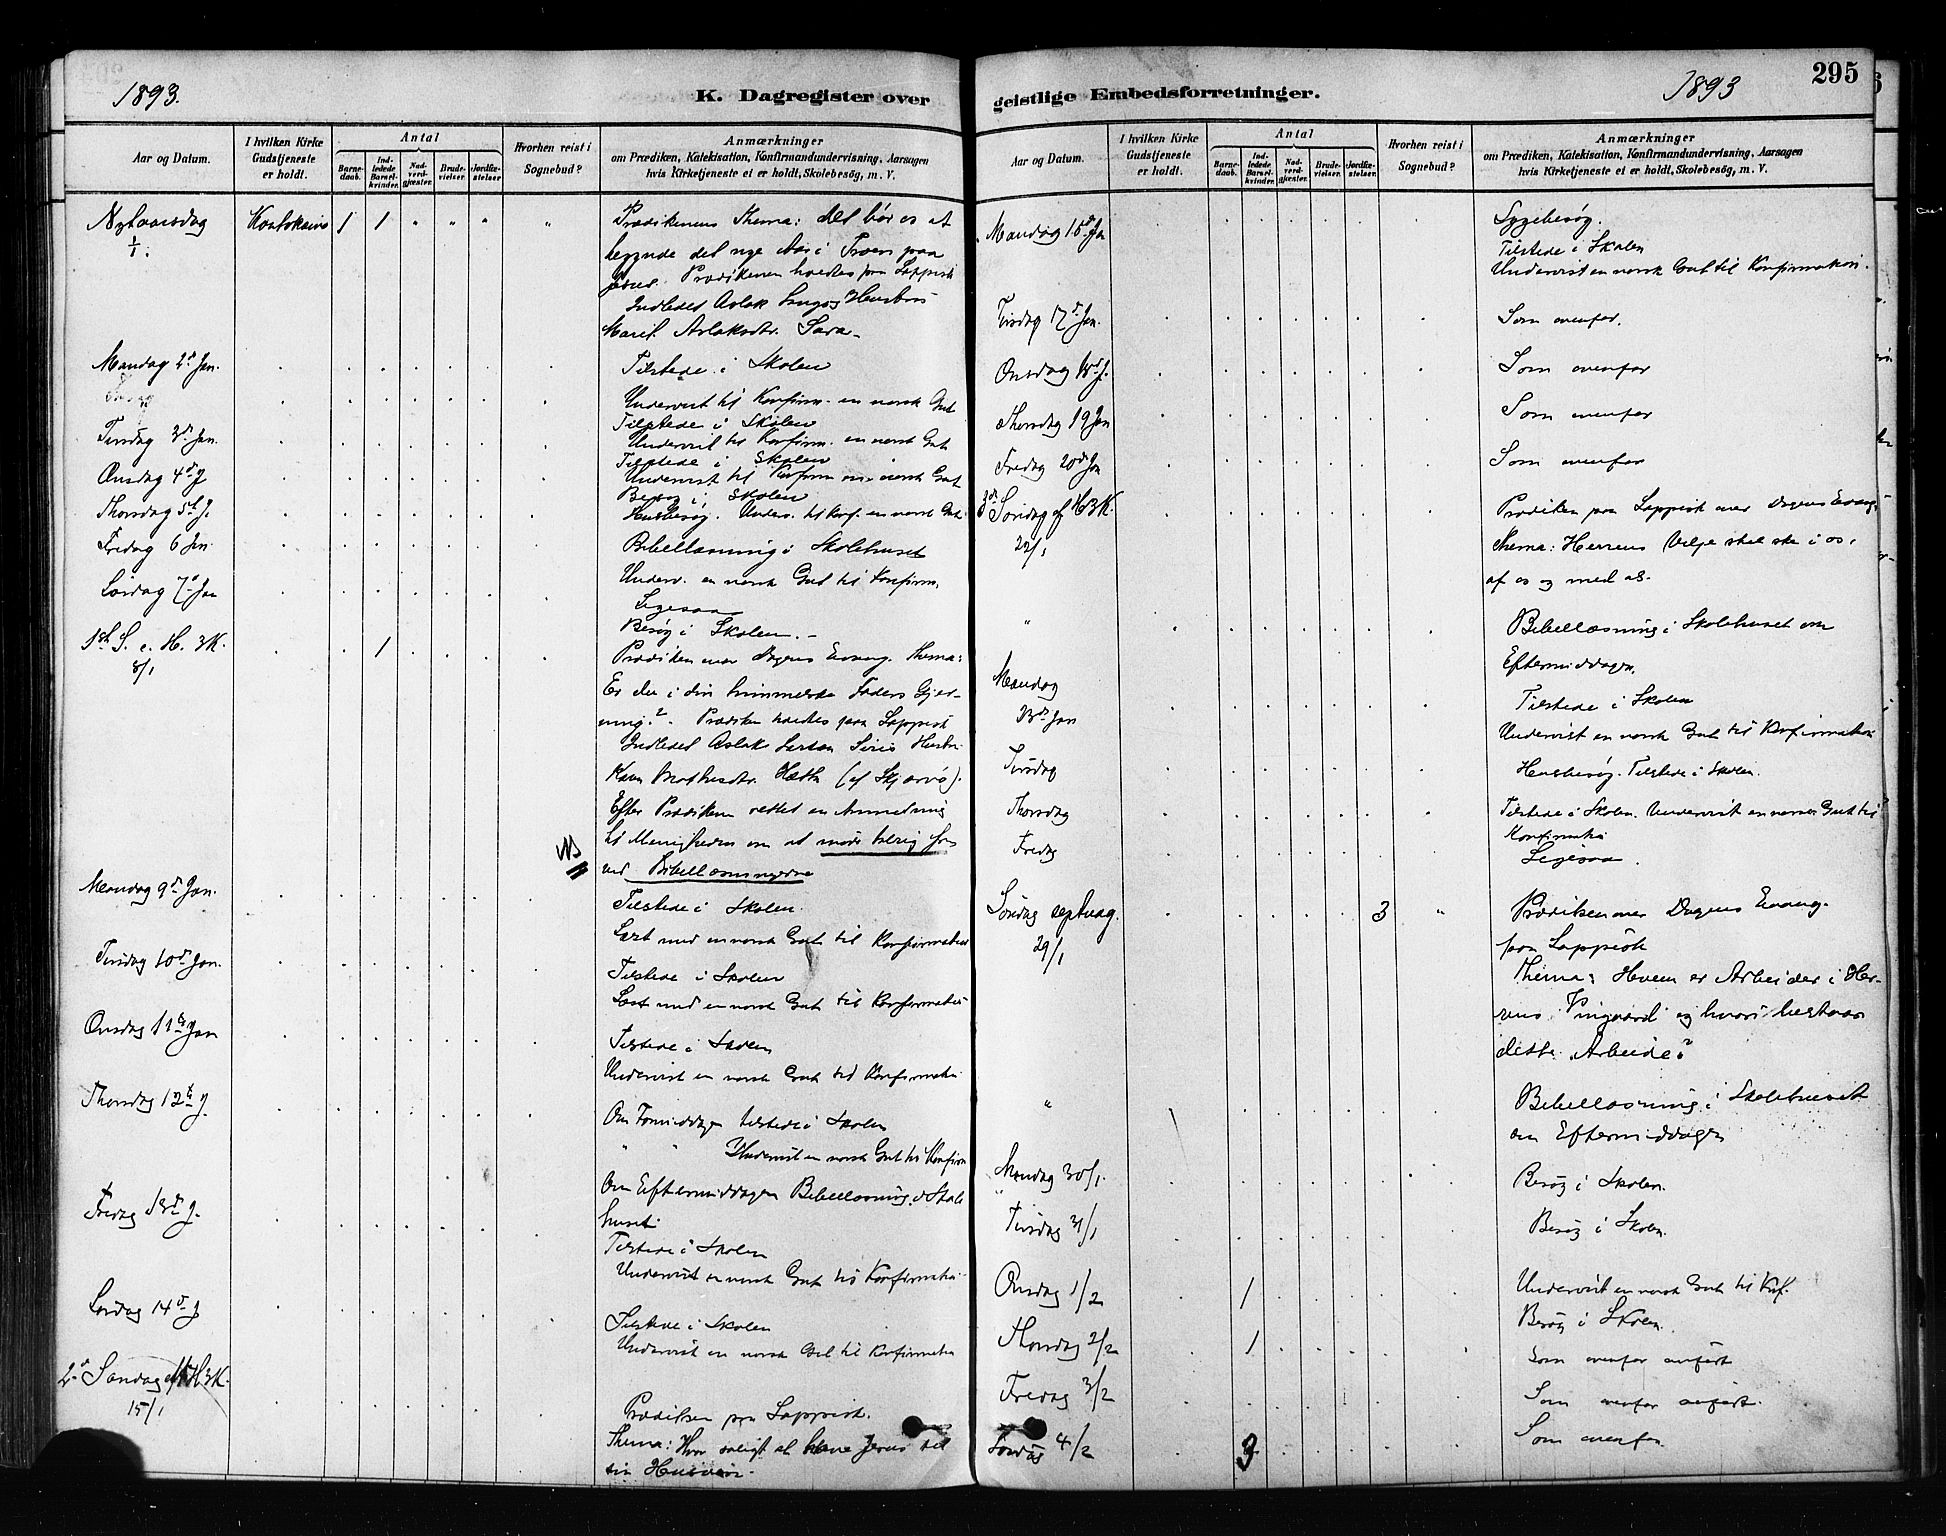 1893.
K. Dagregister over
Aar og Datum.
I hvilken Kirke Gudstjeneste er holdt.
Antal
Barne-daab.
Ind-ledede Barsel-kvinder.
Nad-verd-gjester.
Brude-vielser.
Jordfæ-stelser
Hvorhen reist i Sognebud?
Anmærkninger
om Prædiken, Katekisation, Konfirmandundervisning, Aarsagen
hvis Kirketjeneste ei er holdt, Skolebesøg, m. V.
Nytaarsdag Kautokeino 1 1 " " " " Prædikenens Thema: det bør os at
1/1. begynde det nye Aar i Troen paa
Jesus. Prædikenen holdtes paa Lappisk
Indledet Aslak Hustru
Marit Aslaksdtr. Sara
Mandag 2d Jan. Tilstede i Skolen
Undervist til Konfirm. en norsk Gut
Tilstede i Skolen
Tirsdag 3d Jan. Undervist til Konfirm. en norsk Gut
Tilstede i Skolen
Onsdag 4d J Undervist til Konfirm en norsk Gut
Besøg i Skolen
Thorsdag 5te J. Husbesøg. Underv. til Konf. en norsk Gut.
Fredag 6 Jan. Bibellæsning i Skolehuset
Underv. en norsk Gut til Konfirm.
Lørdag 7d Jan Ligesaa
Besøg i Skolen.
1ste S. e. H. 3K. 1 Prædiken over Dagens Evang. Thema:
8/1 Er du i din himmelske Faders Gjer-
ning? Prædiken holdtes paa Lappisk
Indledet Aslak Larsen Siris Hustru
Karen Hætta (af Skjervø).
Efter Prædiken rettet en Anmodning
til Menigheden om at møde talrig frem
NB ved Bibellæsningerne
Mandag 9d Jan. Tilstede i Skolen.
Læst med en norsk Gut til Konfirmation
Tirsdag 10d Jan. Tilstede i Skolen
Læst med en norsk Gut til Konfirmation
Onsdag 11te Jan Tilstede i Skolen
Undervist en norsk Gut til Konfirmation
Thorsdag 12te J. Om Formiddagen tilstede i Skolen
" " Undervist en norsk Gut til Konfirm
Om Eftermiddagen Bibellæsning i Skole
huset.
Fredag 13d J. Tilstede i Skolen
Undervist en norsk Gut til Konfirmation
Lørdag 14d J Tilstede i Skolen
Undervist en norsk Gut til Konfirmation
2d Søndag e H3K. Prædiken paa Lappisk.
15/1 Thema: Hvor saligt at have Jesus til
sin
geistlige Embedsforretninger.
1893
295
Aar og Datum.
I hvilken Kirke Gudstjeneste er holdt.
Antal
Barne-daab.
Ind-ledede Barsel-kvinder.
Nad-verd-gjester.
Brude-vielser.
Jordfæ-stelser
Hvorhen reist i Sognebud?
Anmærkninger
om Prædiken, Katekisation, Konfirmandundervisning, Aarsagen
hvis Kirketjeneste ei er holdt, Skolebesøg, m. V.
Mandag 16d Jan Sygebesøg.
Tilstede i Skolen
Undervist en norsk Gut til Konfirmation.
Tirsdag 17d Jan. Som ovenfor.
Onsdag 18d J. Som ovenfor
Thorsdag 19 Jan Som ovenfor
Fredag 20d Jan Som ovenfor
3d Søndag ef H3K. Prædiken paa Lappisk over Dagens Evang.
22/1 Thema: Herrens Vilje skal ske i os,
af os og med os.
" Bibellæsning i Skolehuset om
Eftermiddagen.
Mandag Tilstede i Skolen
23d Jan Undervist en norsk Gut til Konfirmation
Tirsdag Husbesøg. Tilstede i Skolen.
Thorsdag Tilstede i Skolen. Undervist en norsk Gut til
Konfirmation
Fredag Ligesaa.
Søndag septuag. 3 " Prædiken over Dagens Evang.
29/1 paa Lappisk
Thema: Hvem er Arbeider i Her-
rens Vingaard og hvori bestaar
dette Arbeide?
" Bibellæsning i Skolehuset
om Eftermiddagen
Mandag 30/1. Besøg i Skolen.
Tirsdag 31/1 Besøg i Skolen.
Onsdag 1/2 1 Undervist en norsk Gut til Konf.
Besøg i Skolen.
Thorsdag 2/2 1 Som ovenfor anført
Fredag 3/2 Som ovenfor anført.
Lørdag 4/2 3 Som ovenfor.